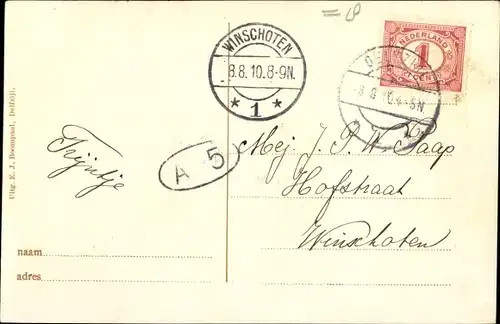 WINSCHOTEN
8.8.10.8-9N.
* 1 *
NEDERLAND
1
CENT
4-5N
A 5
Mej. J. P. W. Paap
Hofstraat
Winschoten
Trijntje
naam
adres
Uitg. E. J. Boompaal, Delfzijl.